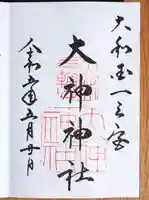 大和国一之宮
大神神社
令和五年五月廿日